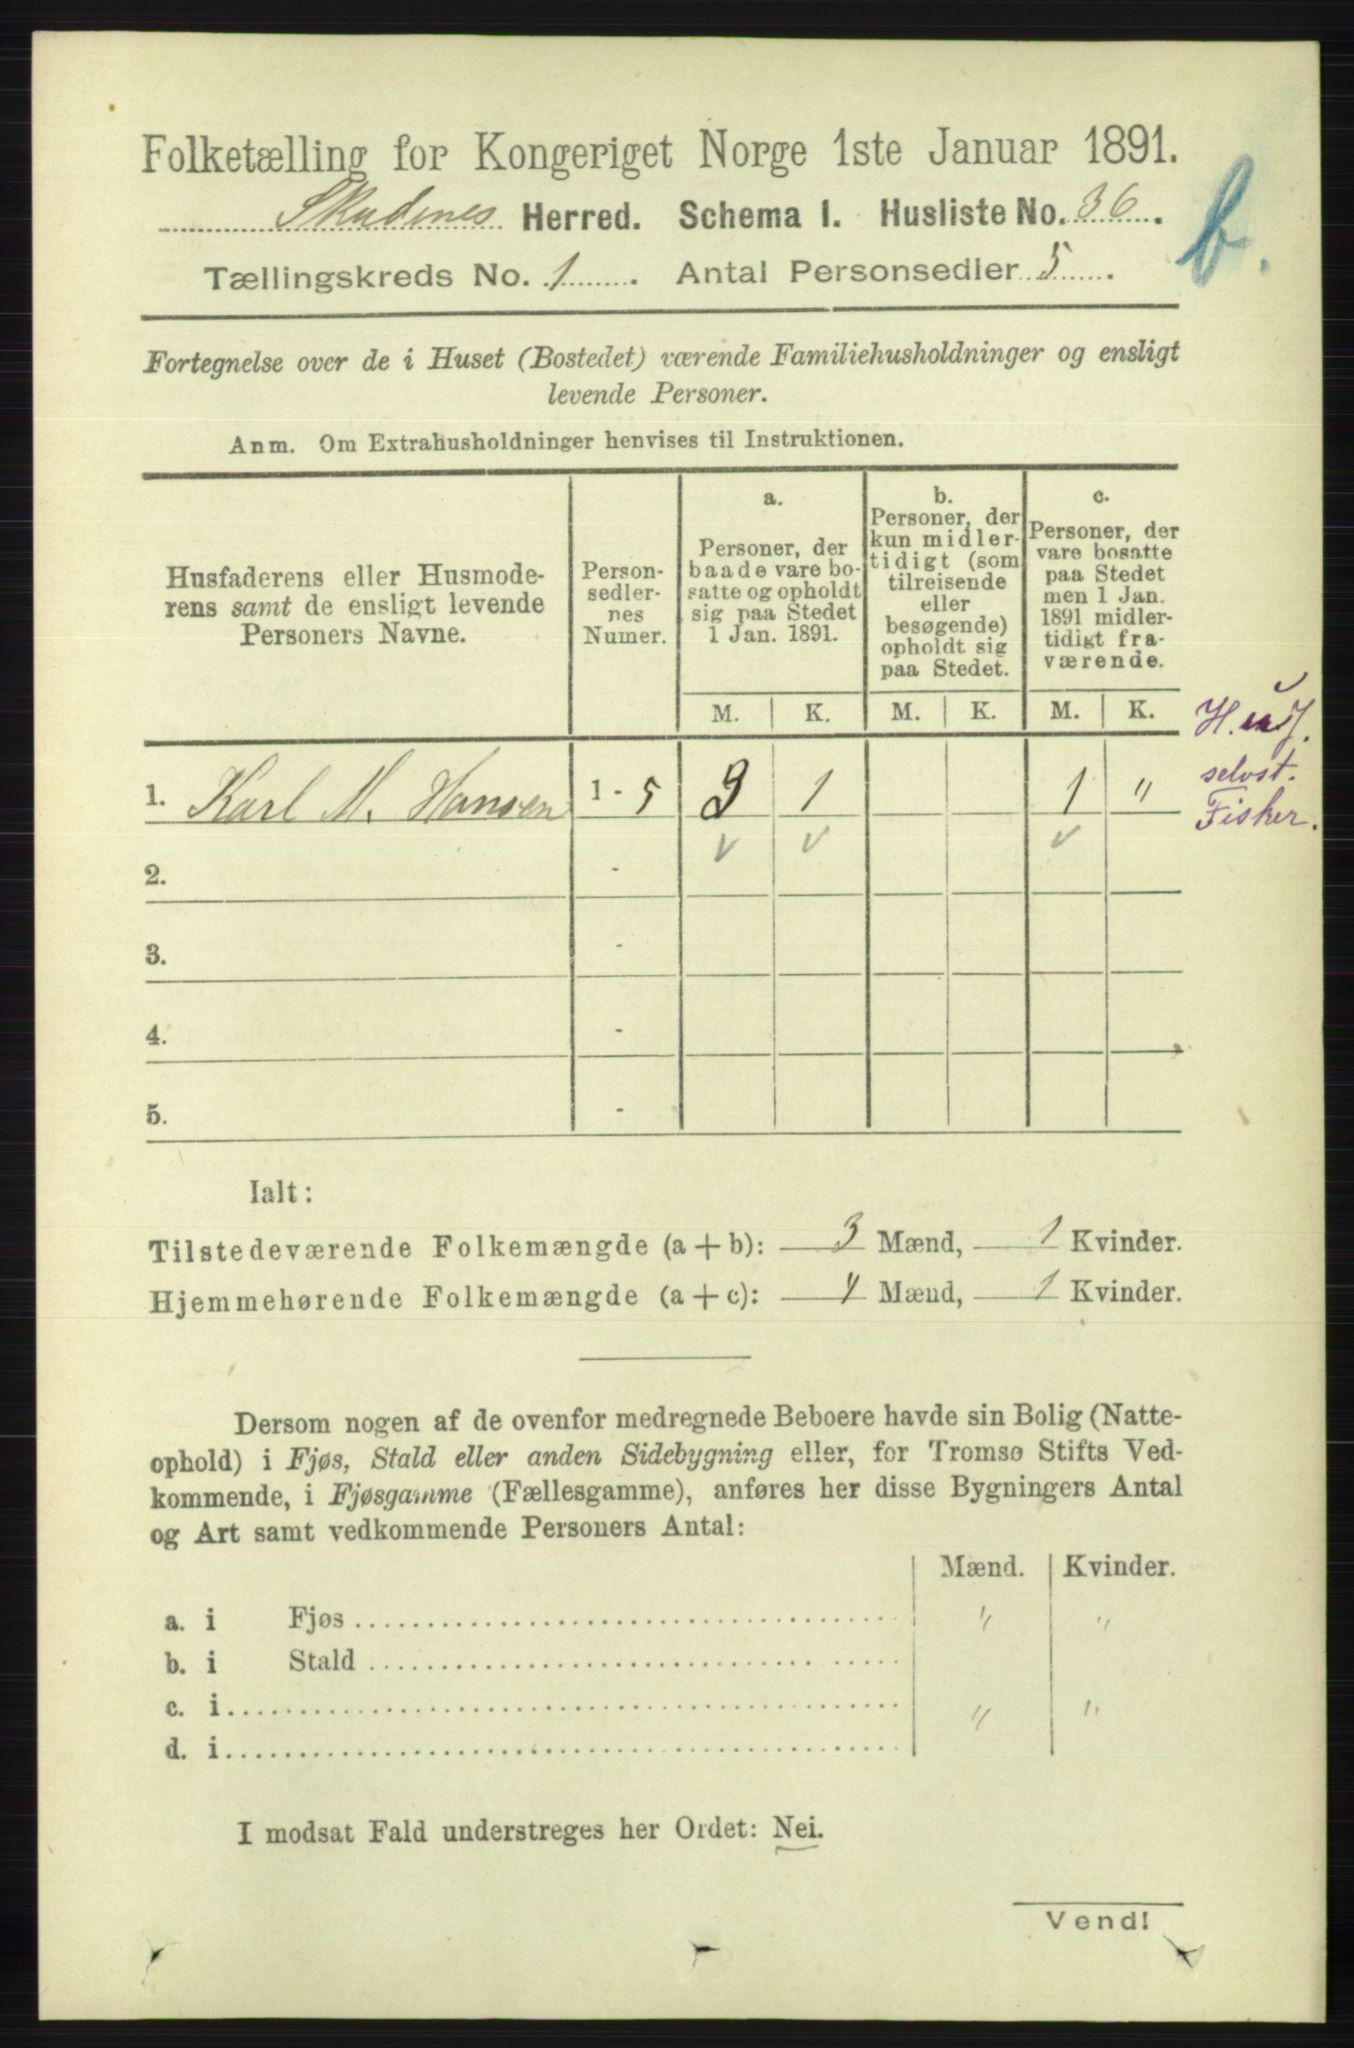 Folketælling for Kongeriget Norge 1ste Januar 1891.
Skudenes Herred. Schema I. Husliste No. 36.
b.
Tællingskreds No. 1. Antal Personsedler 5.
Fortegnelse over de i Huset (Bostedet) værende Familiehusholdninger og ensligt
levende Personer.
Anm. Om Extrahusholdninger henvises til Instruktionen.
Husfaderens eller Husmode-
rens samt de ensligt levende
Personers Navne.
Person-
sedler-
nes
Numer.
a.
Personer, der
baade vare bo-
satte og opholdt
sig paa Stedet
1 Jan. 1891.
b.
Personer, der
kun midler-
tidigt (som
tilreisende
eller
besøgende)
opholdt sig
paa Stedet.
c.
Personer, der
vare bosatte
paa Stedet
men 1 Jan.
1891 midler-
tidigt fra-
værende.
M. K. M. K. M. K.
1. Karl M. Hansen 1 - 5 3 1 1 "
selvst.
Fisker.
2. -
3. -
4. -
5. -
Ialt:
Tilstedeværende Folkemængde (a + b): 3 Mænd, 1 Kvinder.
Hjemmehørende Folkemængde (a + c): 4 Mænd, 1 Kvinder.
Dersom nogen af de ovenfor medregnede Beboere havde sin Bolig (Natte-
ophold) i Fjøs, Stald eller anden Sidebygning eller, for Tromsø Stifts Ved-
kommende, i Fjøsgamme (Fællesgamme), anføres her disse Bygningers Antal
og Art samt vedkommende Personers Antal:
Mænd. Kvinder.
a. i Fjøs " "
b. i Stald
c. i " "
d. i
I modsat Fald understreges her Ordet: Nei.
Vend!